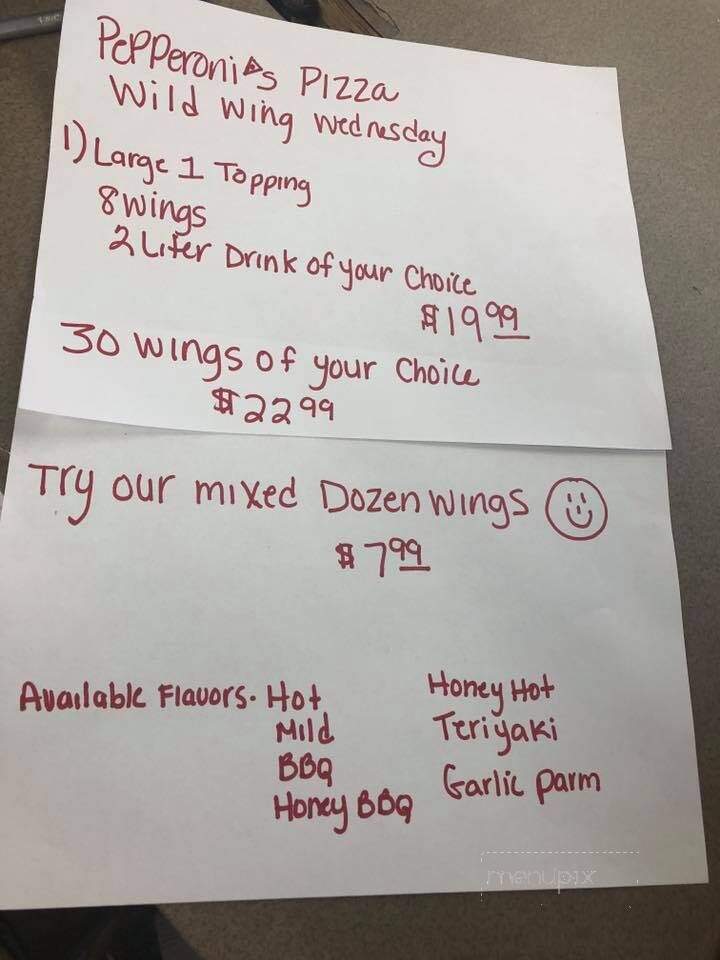 Pepperoni's Pizza
Wild Wing Wednesday
1) Large 1 Topping
8 wings
2 Liter Drink of your Choice
$19.99
30 wings of your Choice
$22.99
Try our mixed Dozen wings
$7.99
Available Flavors. Hot
Mild
BBQ
Honey BBQ
Honey Hot
Teriyaki
Garlic Parm
menupix